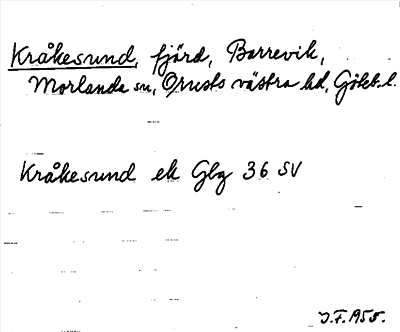 Kråkesund, fjärd, Barrevik,
Morlanda sn, Orusts västra hd, Göteb. l.
Kråkesund ek Gbg 36 SV
J.F. 1955.